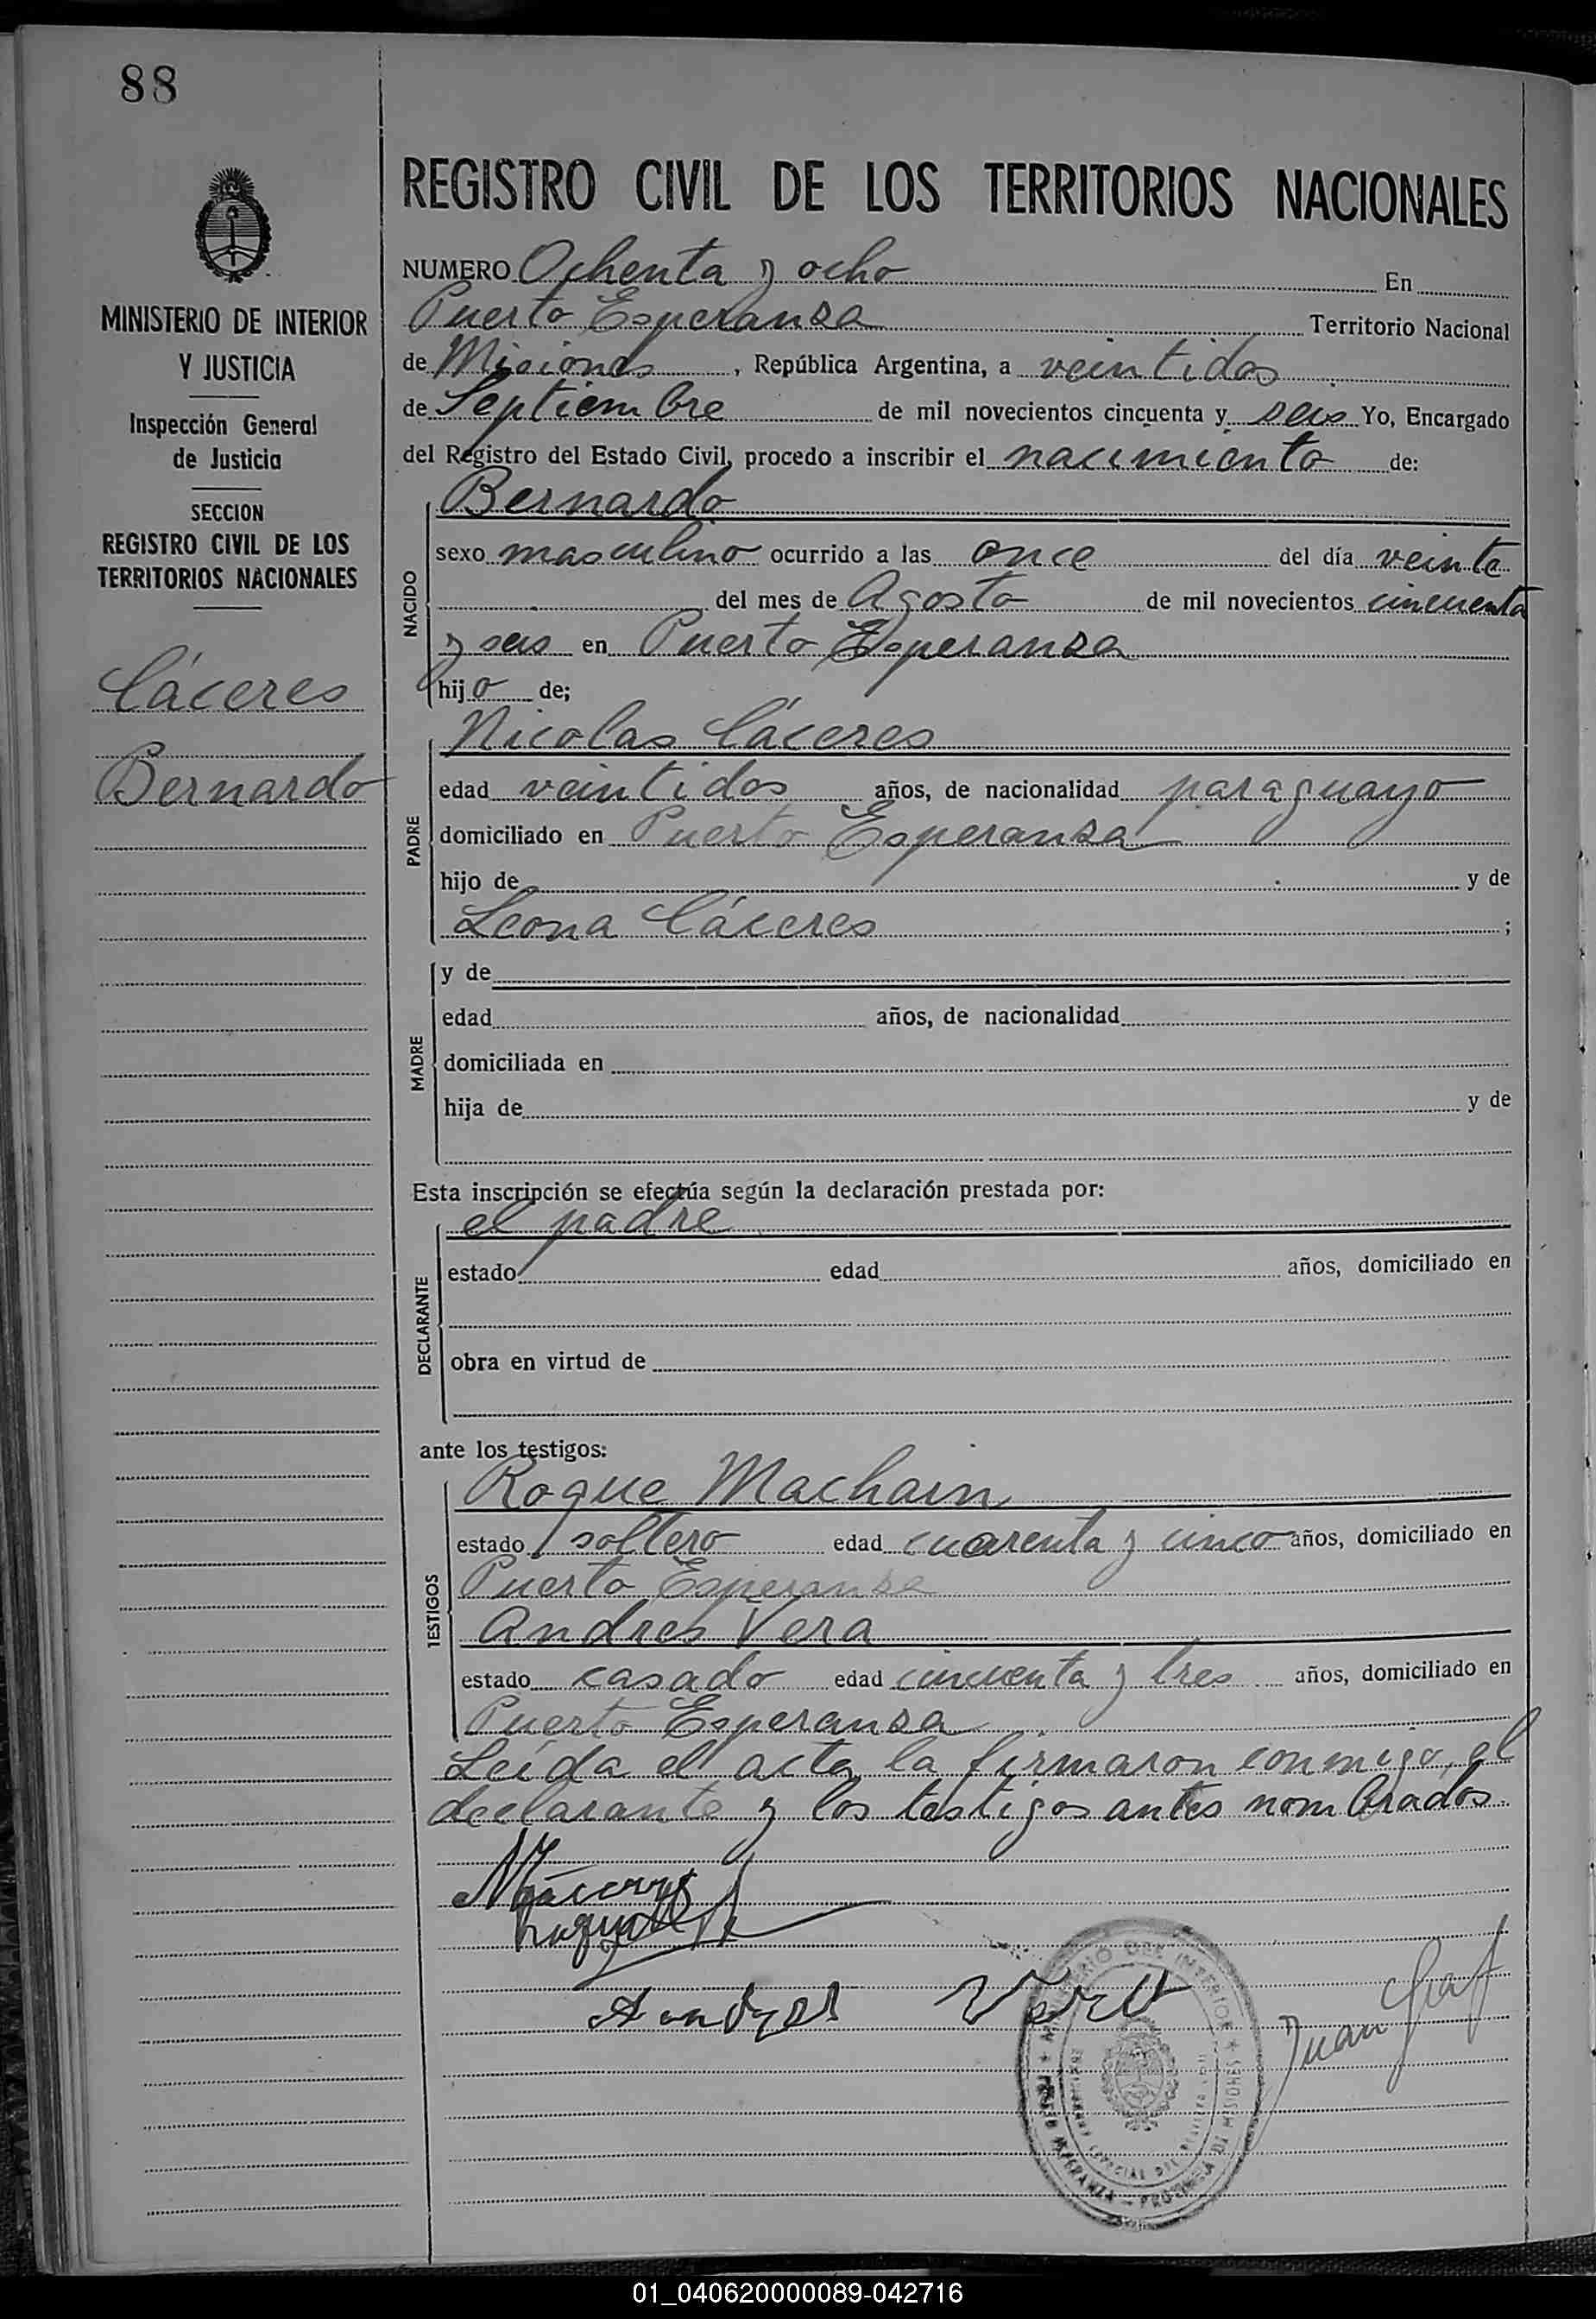 88
MINISTERIO DE INTERIOR
Y JUSTICIA
Inspección General
de Justicia
SECCION
REGISTRO CIVIL DE LOS
TERRITORIOS NACIONALES
Cáceres
Bernardo
REGISTRO CIVIL DE LOS TERRITORIOS NACIONALES
NUMERO Ochenta y ocho En
Puerto Esperansa Territorio Nacional
de Misiones, República Argentina, a veintidos
de Septiembre de mil novecientos cincuenta y seis Yo, Encargado
del Registro del Estado Civil, procedo a inscribir el nacimiento de:
NACIDO
Bernardo
sexo masculino ocurrido a las once del día veinte
del mes de Agosto de mil novecientos cincuenta
y seis en Puerto Esperansa
hijo de;
PADRE
Nicolas Cáceres
edad veintidos años, de nacionalidad paraguayo
domiciliado en Puerto Esperansa
hijo de y de
Leona Cáceres ;
MADRE
y de
edad años, de nacionalidad
domiciliada en
hija de y de
Esta inscripción se efectúa según la declaración prestada por:
DECLARANTE
el padre
estado edad años, domiciliado en
obra en virtud de
ante los testigos:
TESTIGOS
Roque Machain
estado soltero edad cuarenta y cinco años, domiciliado en
Puerto Esperansa
Andres Vera
estado casado edad cincuenta y tres años, domiciliado en
Puerto Esperansa
Leída el acta, la firmaron conmigo, el
declarante y los testigos antes nombrados.
NCáceres
Andres Vera
Juan Graf
MINISTERIO DEL INTERIOR
PUERTO ESPERANZA - PROVINCIA DE MISIONES
01_040620000089-042716